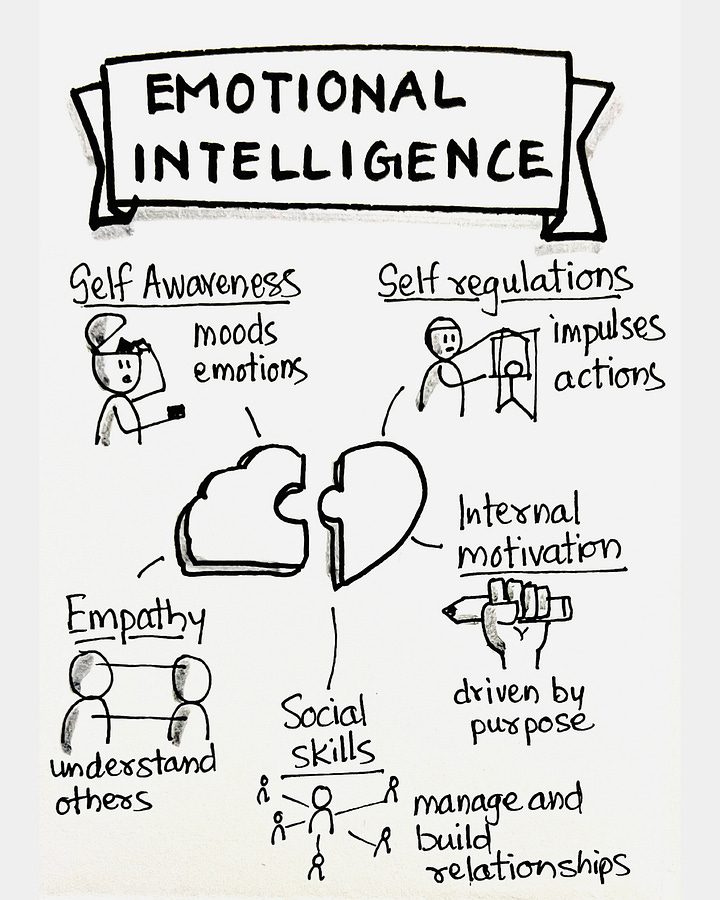 EMOTIONAL
INTELLIGENCE
Self Awareness
moods
emotions
Self regulations
impulses
actions
Internal
motivation
driven by
purpose
Empathy
understand
others
Social
skills
manage and
build
relationships